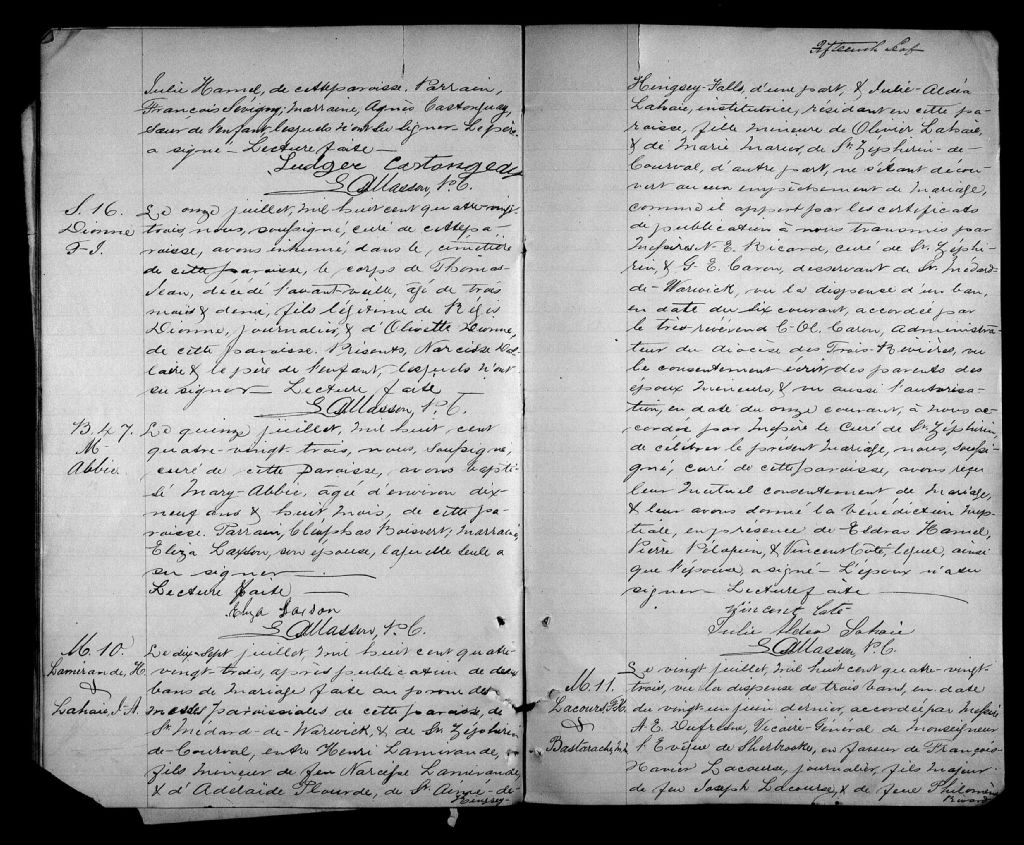 Julie Hamel, de cette paroisse. Parrain,
François Sévigny; marraine, Agnès Castonguay,
sœur de l'enfant, lesquels n'ont su signer. Le père
a signé - Lecture faite -
Ludger Castonguay
Masson, P. C.
S. 16.
Dionne
T-J.
Le onze juillet, mil huit cent quatre-vingt-
trois, nous, soussigné, curé de cette pa-
roisse, avons inhumé dans le cimetière
de cette paroisse, le corps de Thomas-
Jean, décédé l'avant-veille, agé de trois
mois & demi, fils légitime de Régis
Dionne, journalier, & d'Olivette Dionne,
de cette paroisse. Présents, Narcisse
& le père de l'enfant, lesquels n'ont
su signer - Lecture faite
Masson, P. C.
B. 47.
M-
Abbie.
Le quinze juillet, mil huit cent
quatre-vingt-trois, nous, soussigné,
curé de cette paroisse, avons bapti-
sé Mary-Abbie, agée d'environ dix-
neuf ans & huit mois, de cette pa-
roisse. Parrain, Cléophas Boisvert; marraine,
Eliza Laxson, son épouse, laquelle seule a
su signer
Lecture faite -
Eliza Laxson
Masson, P. C.
M. 10.
Lamirande, H.
&
Lahaie, J. A.
Le dix-sept juillet, mil huit cent quatre-
vingt-trois, après publication de deux
bans de mariage faite au prône des
messes paroissiales de cette paroisse, de
St Médard-de-Warwick, & de St Zéphirin-
de-Courval, entre Henri Lamirande,
fils mineur de feu Narcisse Lamirande,
& d'Adelaïde Plourde, de St Aimé-de-
Kingsey-
Fifteenth leaf
Kingsey-Falls, d'une part, & Julie-Aldéa
Lahaie, institutrice, résidant en cette pa-
roisse, fille mineure de Olivier Lahaie,
& de Marie, de St Zéphirin-de-
Courval, d'autre part, ne s'étant décou-
vert aucun empêchement de mariage,
comme il appert par les certificats
de publication à nous transmis par
Messires N. E. Ricard, curé de St. Zéphi-
rin, & G. E. Caron, desservant de St. Médard-
de-Warwick, vu la dispense d'un ban,
en date du dix courant, accordée par
le très-révérend C. Ol. Caron, Administra-
teur du diocèse des Trois-Rivières, vu
le consentement écrit des parents des
époux mineurs, & vu aussi l'autorisa-
tion, en date du onze courant, à nous ac-
cordée par Messire le Curé de St. Zéphirin,
de célébrer le présent mariage, nous, soussi-
gné, curé de cette paroisse, avons reçu
leur mutuel consentement de mariage,
& leur avons donné la bénédiction nup-
tiale, en présence de Eldras Hamel,
Pierre Pellerin, & Vincent Coté, lequel, ainsi
que l'épouse, a signé - L'époux n'a su
signer - Lecture faite
Vincent Coté
Julie Aldea Lahaie
Masson, P. C.
M. 11.
Lacourse, F. X.
&
Bastarache,
Le vingt juillet, mil huit cent quatre-vingt-
trois, vu la dispense de trois bans, en date
du vingt un juin dernier, accordée par Messire
A. E. Dufresne, Vicaire-Général de Monseigneur
l'Evêque de Sherbrooke, en faveur de François-
Xavier Lacourse, journalier, fils majeur
de feu Joseph Lacourse, & de feue Philomène
Ricard